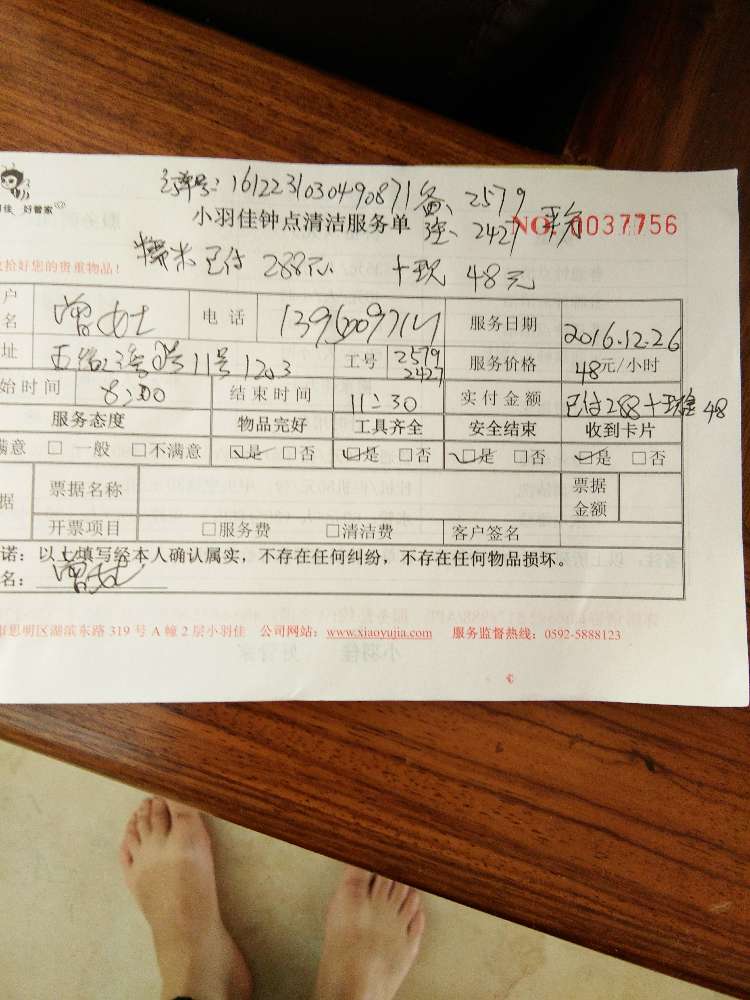 订单号: 1612231030490871 备、2579
小羽佳钟点清洁服务单 强、2427 平分
NO. 0037756
羽佳 好管家
糯米已付 288元 +现 48元
收拾好您的贵重物品！
户名 曾女士 电话 服务日期 2016.12.26
址 11号1203 工号 2579 2427 服务价格 48元/小时
始时间 8:00 结束时间 11:30 实付金额 已付288+现金48
服务态度 物品完好 工具齐全 安全结束 收到卡片
满意 □ 一般 □不满意 ☑是 □否 ☑是 □否 ☑是 □否 ☑是 □否
据 票据名称 票据金额
开票项目 □服务费 □清洁费 客户签名
诺：以上填写经本人确认属实，不存在任何纠纷，不存在任何物品损坏。
名：曾女士
市思明区湖滨东路 319 号 A 幢 2 层小羽佳 公司网站：www.xiaoyujia.com 服务监督热线：0592-5888123